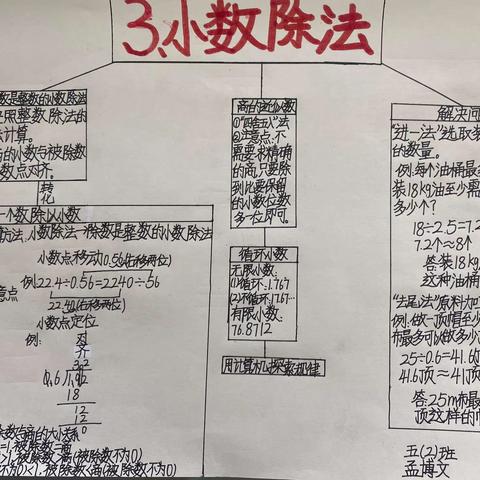 3、小数除法
数是整数的小数除法
照整数除法的
法计算。
的小数与被除数
数点对齐。
转化
一个数除以小数
小数除法→除数是整数的小数除法
小数点移动0.56(右移两位)
例:22.4÷0.56=2240÷56
意点
22.40(右移两位)
小数点定位
例:
对齐
3.2
0.6
18
12
12
0
商的近似数
①"四舍五入"法
②注意点:不
需要求精确
的商,只要除
到比要保留
的小数位数
多一位即可。
循环小数
无限小数:
(1)循环:1.767
(2)不循环:17.67…
有限小数:
76.8712
用计算机探索规律
解决问
"进一法"选取装
的数量。
例:每个油桶最多
装18kg油至少需
多少个?
18÷2.5=7.2
7.2个≈8个
答:装18kg
这种油桶
"去尾法"原料力
例:做一顶帽至少
布最多可以做多少
25÷0.6=41.6
41.6顶≈41顶
答:25m布最
顶这样的帽
除数与商的大小关系
被除数=商
被除数>商(被除数不为0)
被除数<商(被除数不为0)
五(2)班
孟博文